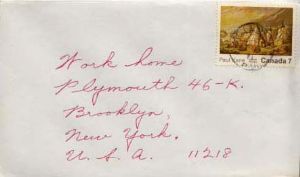 Paul Kane
Canada 7
Work home
Plymouth 46-K.
Brooklyn,
New York.
U.S.A. 11218